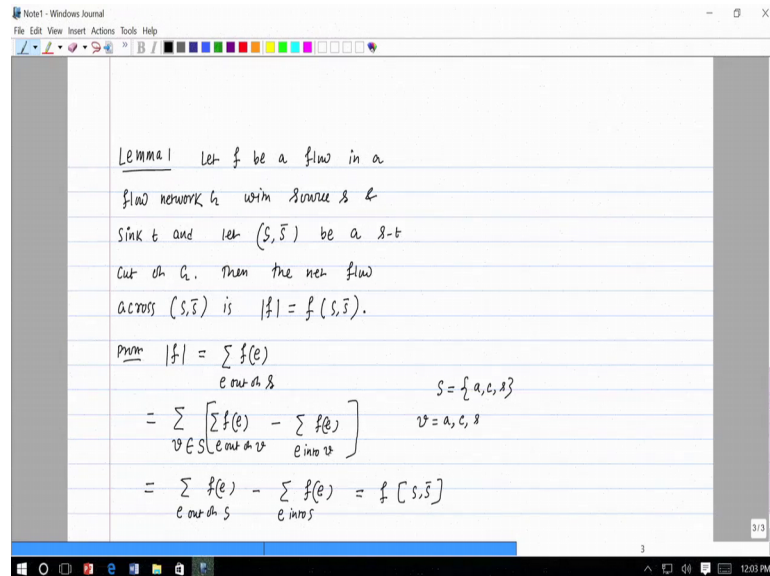 Note1 - Windows Journal
File Edit View Insert Actions Tools Help
B I
Lemma 1 Let f be a flow in a
flow network G with source s &
sink t and let (S, S̄) be a s-t
cut of G. Then the net flow
across (S, S̄) is |f| = f(S, S̄).
Proof |f| = Σ f(e)
e out of s
S = {a, c, s}
= Σ [Σ f(e) - Σ f(e)]
v = a, c, s
v ∈ S e out of v e into v
= Σ f(e) - Σ f(e) = f[S, S̄]
e out of S e into S
3/3
3
12:03 PM